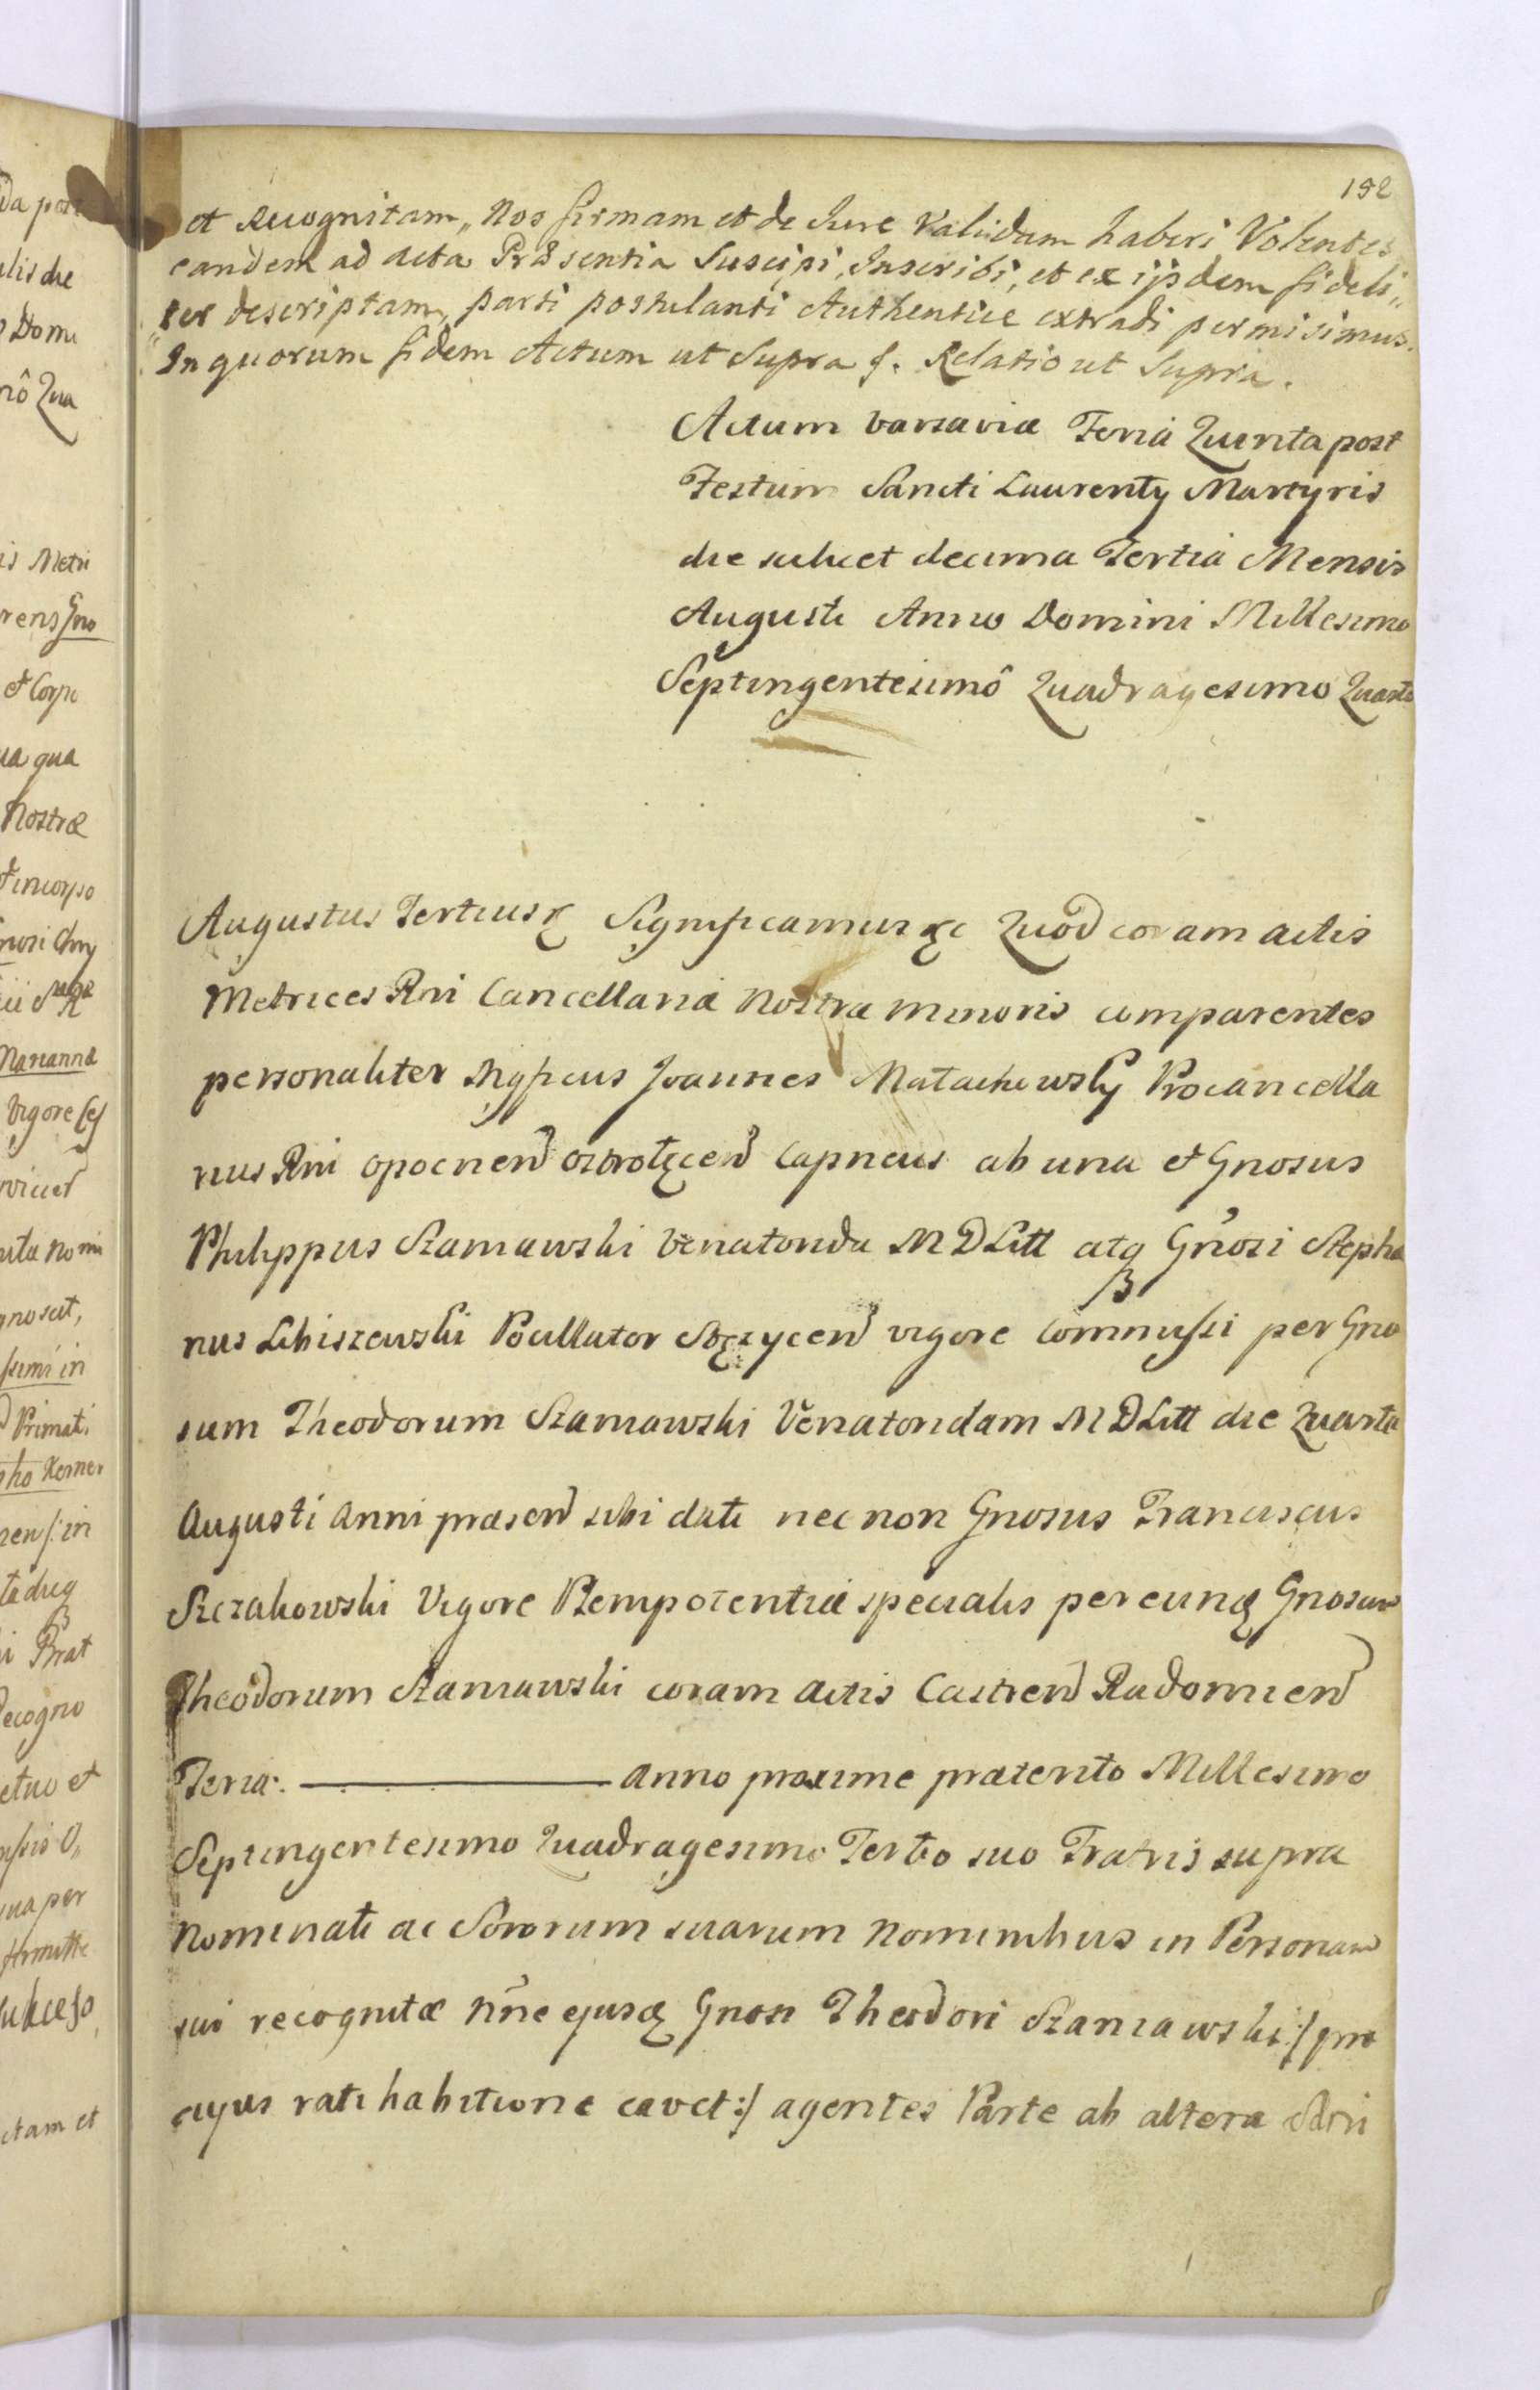 152
et Recognitam, Nos firmam et de Iure Validam haberi Volentes
eandem ad acta Præsentia Suscipi, Inscribi, et ex ijsdem fideli„
„ter descriptam, parti postulanti Authentice extradi permisimus.
In quorum fidem Actum ut Supra f. Relatio ut Supra.
Actum Varsaviæ Feria Quinta post
Festum Sancti Laurenty Martyris
die scilicet decima Tertia Mensis
Augusti Anno Domini Millesimo
Septingentesimô Quadragesimo Quarto
Augustus Tertius & Significamus &c Quod coram actis
Metrices Rni Cancellariæ Nostræ minoris comparentes
personaliter Mgficus Joannes Małachowsky Procancella
rius Rni opocnen ostrołęcen Capneus ab una et Gnosus
Philippus Szaniawski Venatorida M D Litt atq Gnosi Stepha
nus Libiszewski Pocillator Stężycen vigore Commissi per Gno
sum Theodorum Szaniawski Venatoridam M D Litt die Quarta
Augusti Anni præsen sibi dati nec non Gnosus Franciscus
Szczakowski Vigore Plempotentiæ specialis per eunq Gnosum
Theodorum Szaniawski coram Actis Castren Radomien
Feria. anno proxime præterito Millesimo
Septingentesimo Quadragesimo Tertio suo Fratris supra
Nominati ac Sororum suarum Nominibus in Personam
sui recognitæ Nne ejusq Gnosi Theodori Szaniawski :/ pro
cujus ratihabitione cavet :/ agentes Parte ab altera